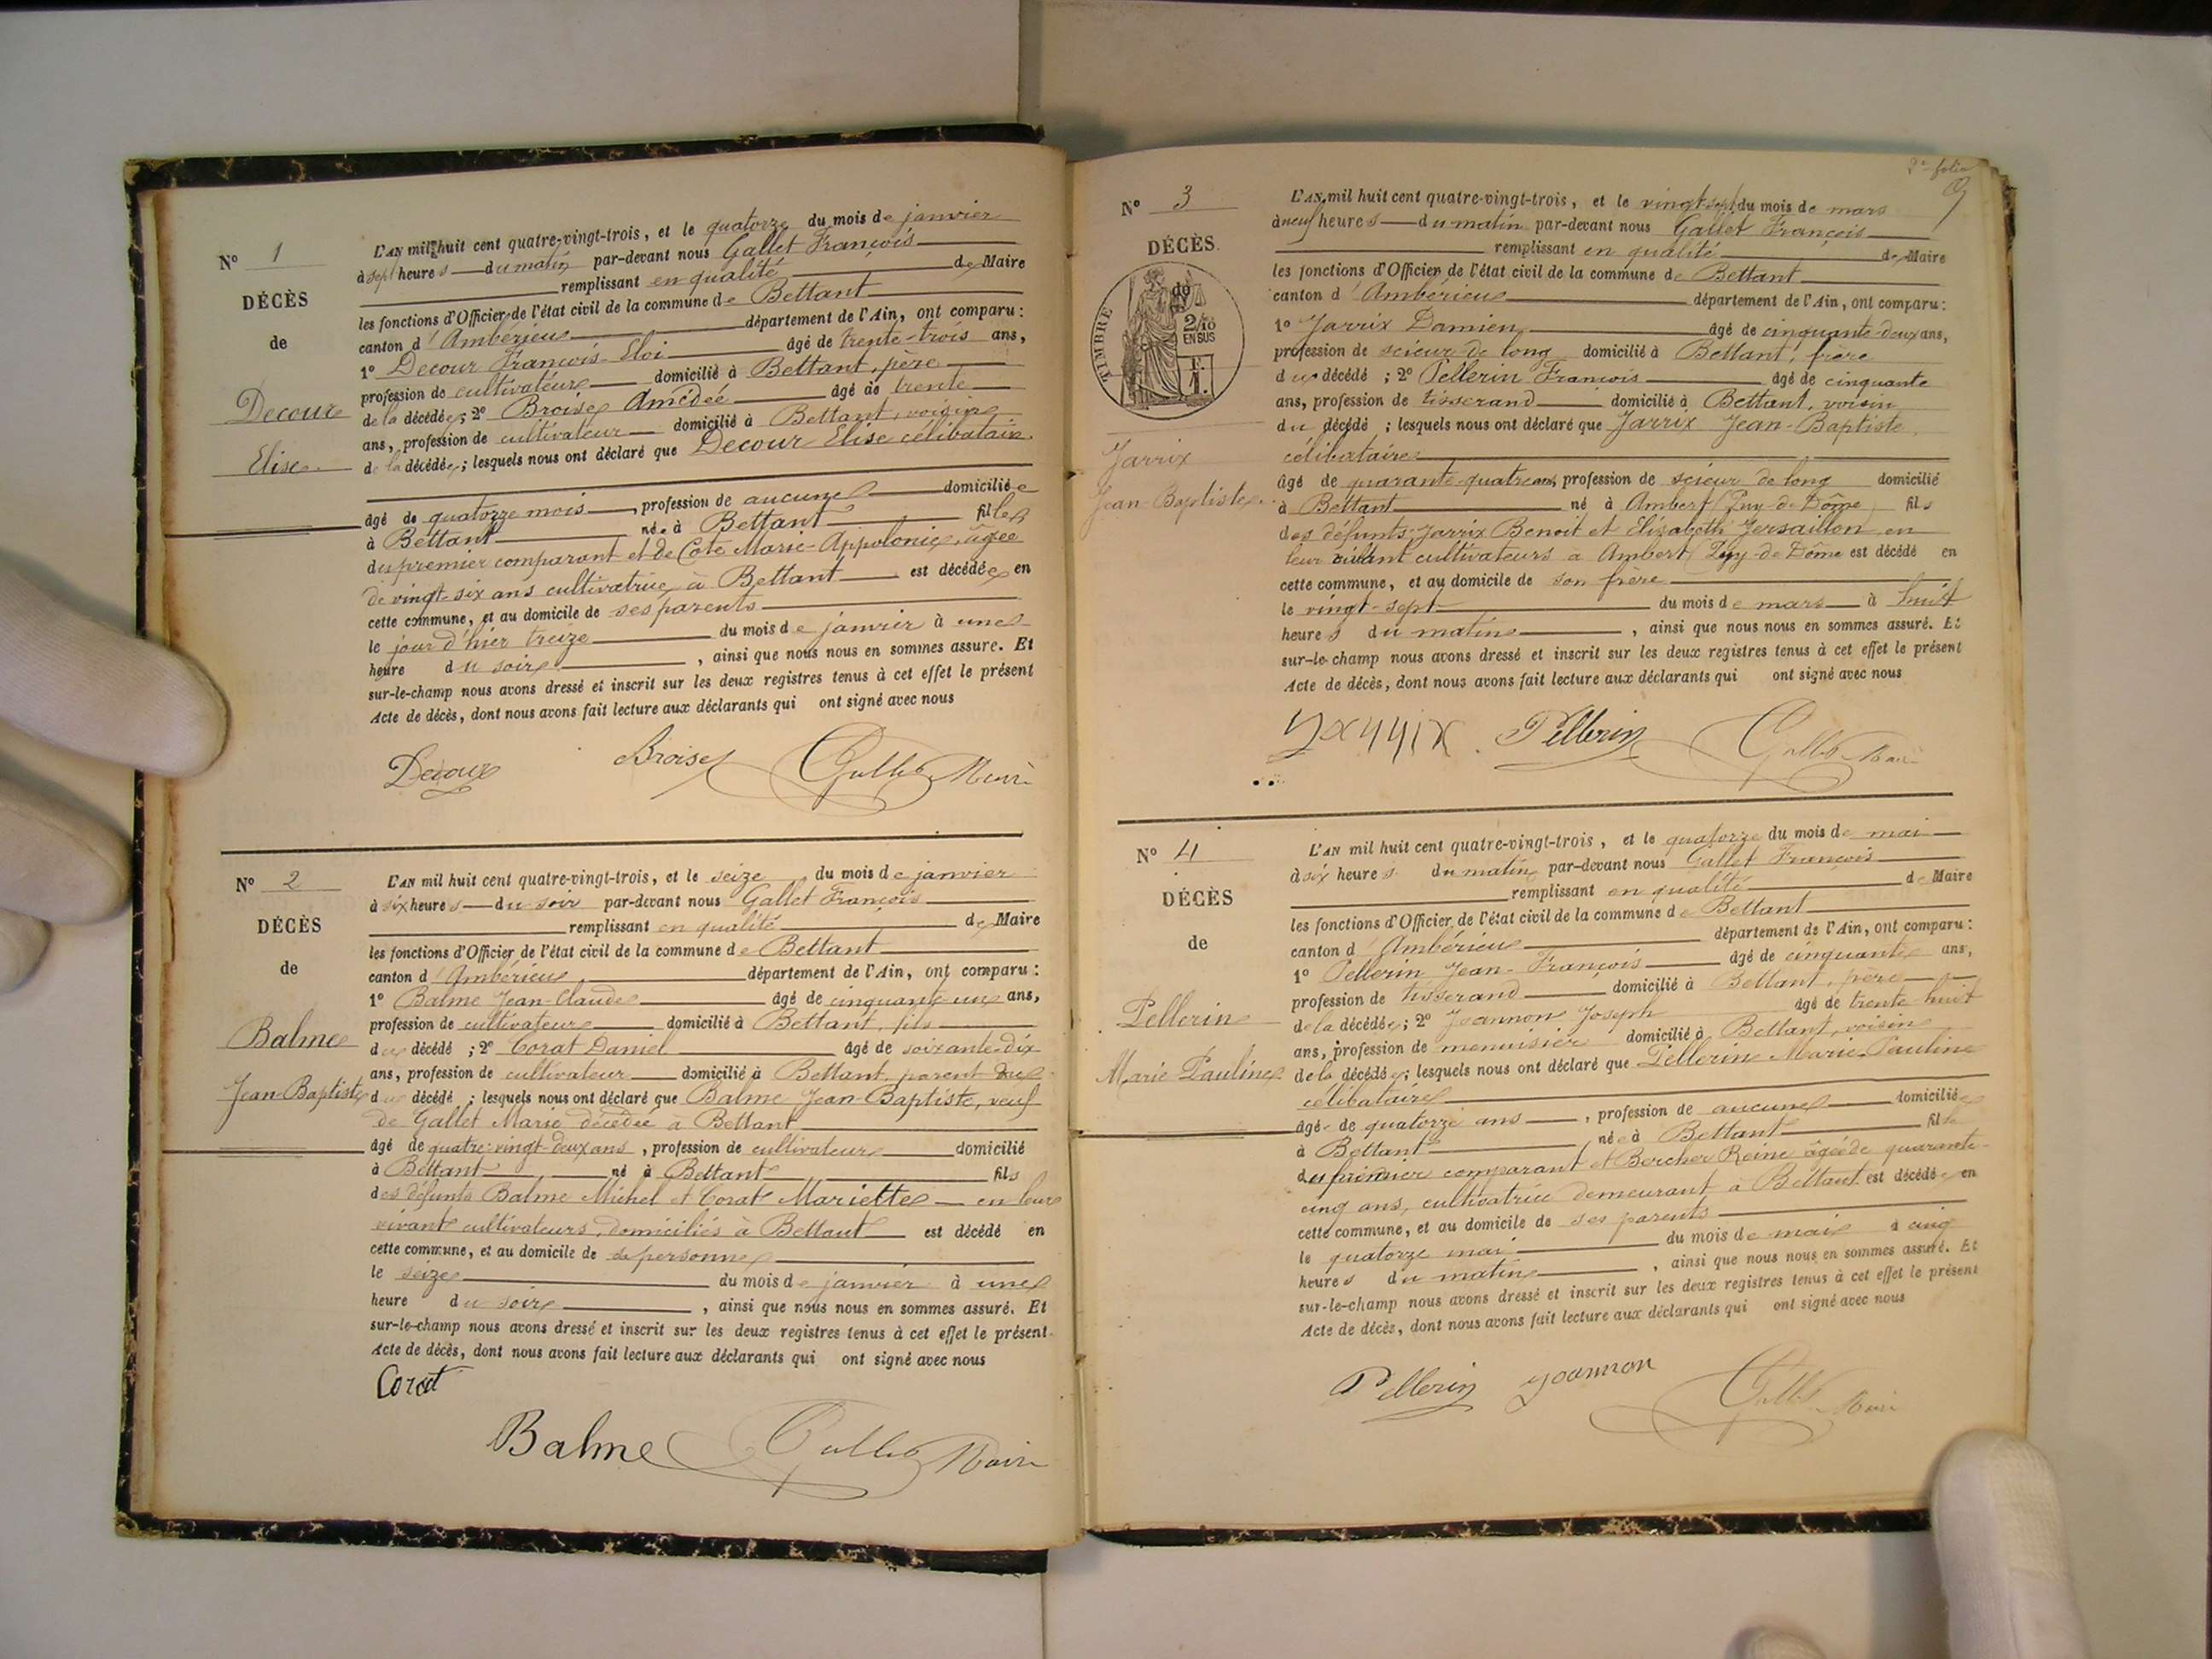 N° 1
DÉCÈS
de
Decour
Elise
L'AN mil huit cent quatre-vingt-trois, et le quatorze du mois de janvier
à sept heures du matin par-devant nous Gallet François
remplissant en qualité de Maire
les fonctions d'Officier de l'état civil de la commune de Bettant
canton d'Ambérieu département de l'Ain, ont comparu:
1° Decour François-Eloi âgé de trente-trois ans,
profession de cultivateur domicilié à Bettant, père
de la décédée; 2° Broise Amédée âgé de trente
ans, profession de cultivateur domicilié à Bettant, voisin
de la décédée; lesquels nous ont déclaré que Decour Elise célibataire
âgé de quatorze mois, profession de aucune domiciliée
à Bettant née à Bettant fille
du premier comparant et de Cote Marie-Appolonie, âgée
de vingt-six ans cultivatrice à Bettant est décédée en
cette commune, et au domicile de ses parents
le jour d'hier treize du mois de janvier à une
heure du soir, ainsi que nous nous en sommes assuré. Et
sur-le-champ nous avons dressé et inscrit sur les deux registres tenus à cet effet le présent
Acte de décès, dont nous avons fait lecture aux déclarants qui ont signé avec nous
Decour Broise Gallet Maire
N° 2
DÉCÈS
de
Balme
Jean-Baptiste
L'AN mil huit cent quatre-vingt-trois, et le seize du mois de janvier
à six heures du soir par-devant nous Gallet François
remplissant en qualité de Maire
les fonctions d'Officier de l'état civil de la commune de Bettant
canton d'Ambérieu département de l'Ain, ont comparu:
1° Balme Jean-Claude âgé de cinquante-une ans,
profession de cultivateur domicilié à Bettant, fils
du décédé; 2° Corat Daniel âgé de soixante-dix
ans, profession de cultivateur domicilié à Bettant, parent
du décédé; lesquels nous ont déclaré que Balme Jean-Baptiste, veuf
de Gallet Marie décédée à Bettant
âgé de quatre-vingt-deux ans, profession de cultivateur domicilié
à Bettant né à Bettant fils
des défunts Balme Michel et Corat Mariette en leur
vivant cultivateurs, domiciliés à Bettant est décédé en
cette commune, et au domicile de sa personne
le seize du mois de janvier à une
heure du soir, ainsi que nous nous en sommes assuré. Et
sur-le-champ nous avons dressé et inscrit sur les deux registres tenus à cet effet le présent
Acte de décès, dont nous avons fait lecture aux déclarants qui ont signé avec nous
Corat
Balme Gallet Maire
2e folio
N° 3
DÉCÈS
de
TIMBRE
2/10
EN SUS
Jarrix
Jean-Baptiste
L'AN mil huit cent quatre-vingt-trois, et le vingt-sept du mois de mars
à neuf heures du matin par-devant nous Gallet François
remplissant en qualité de Maire
les fonctions d'Officier de l'état civil de la commune de Bettant
canton d'Ambérieu département de l'Ain, ont comparu:
1° Jarrix Damien âgé de cinquante-deux ans,
profession de scieur de long domicilié à Bettant, frère
du décédé; 2° Pellerin François âgé de cinquante
ans, profession de tisserand domicilié à Bettant, voisin
du décédé; lesquels nous ont déclaré que Jarrix Jean-Baptiste
célibataire
âgé de quarante-quatre ans, profession de scieur de long domicilié
à Bettant né à Ambert Puy-de-Dôme fils
des défunts Jarrix Benoit et Elizabeth Jersaillon en
leur vivant cultivateurs à Ambert Puy-de-Dôme est décédé en
cette commune, et au domicile de son frère
le vingt-sept du mois de mars à huit
heures du matin, ainsi que nous nous en sommes assuré. Et
sur-le-champ nous avons dressé et inscrit sur les deux registres tenus à cet effet le présent
Acte de décès, dont nous avons fait lecture aux déclarants qui ont signé avec nous
Jarrix Pellerin Gallet Maire
N° 4
DÉCÈS
de
Pellerin
Marie Pauline
L'AN mil huit cent quatre-vingt-trois, et le quatorze du mois de mai
à six heures du matin par-devant nous Gallet François
remplissant en qualité de Maire
les fonctions d'Officier de l'état civil de la commune de Bettant
canton d'Ambérieu département de l'Ain, ont comparu:
1° Pellerin Jean-François âgé de cinquante ans,
profession de tisserand domicilié à Bettant, père
de la décédée; 2° Joannon Joseph âgé de trente-huit
ans, profession de menuisier domicilié à Bettant, voisin
de la décédée; lesquels nous ont déclaré que Pellerin Marie-Pauline
célibataire
âgée de quatorze ans, profession de aucune domiciliée
à Bettant née à Bettant fille
du premier comparant et Bercher Reine âgée de quarante-
cinq ans, cultivatrice demeurant à Bettant est décédée en
cette commune, et au domicile de ses parents
le quatorze mai du mois de mai à cinq
heures du matin, ainsi que nous nous en sommes assuré. Et
sur-le-champ nous avons dressé et inscrit sur les deux registres tenus à cet effet le présent
Acte de décès, dont nous avons fait lecture aux déclarants qui ont signé avec nous
Pellerin Joannon Gallet Maire